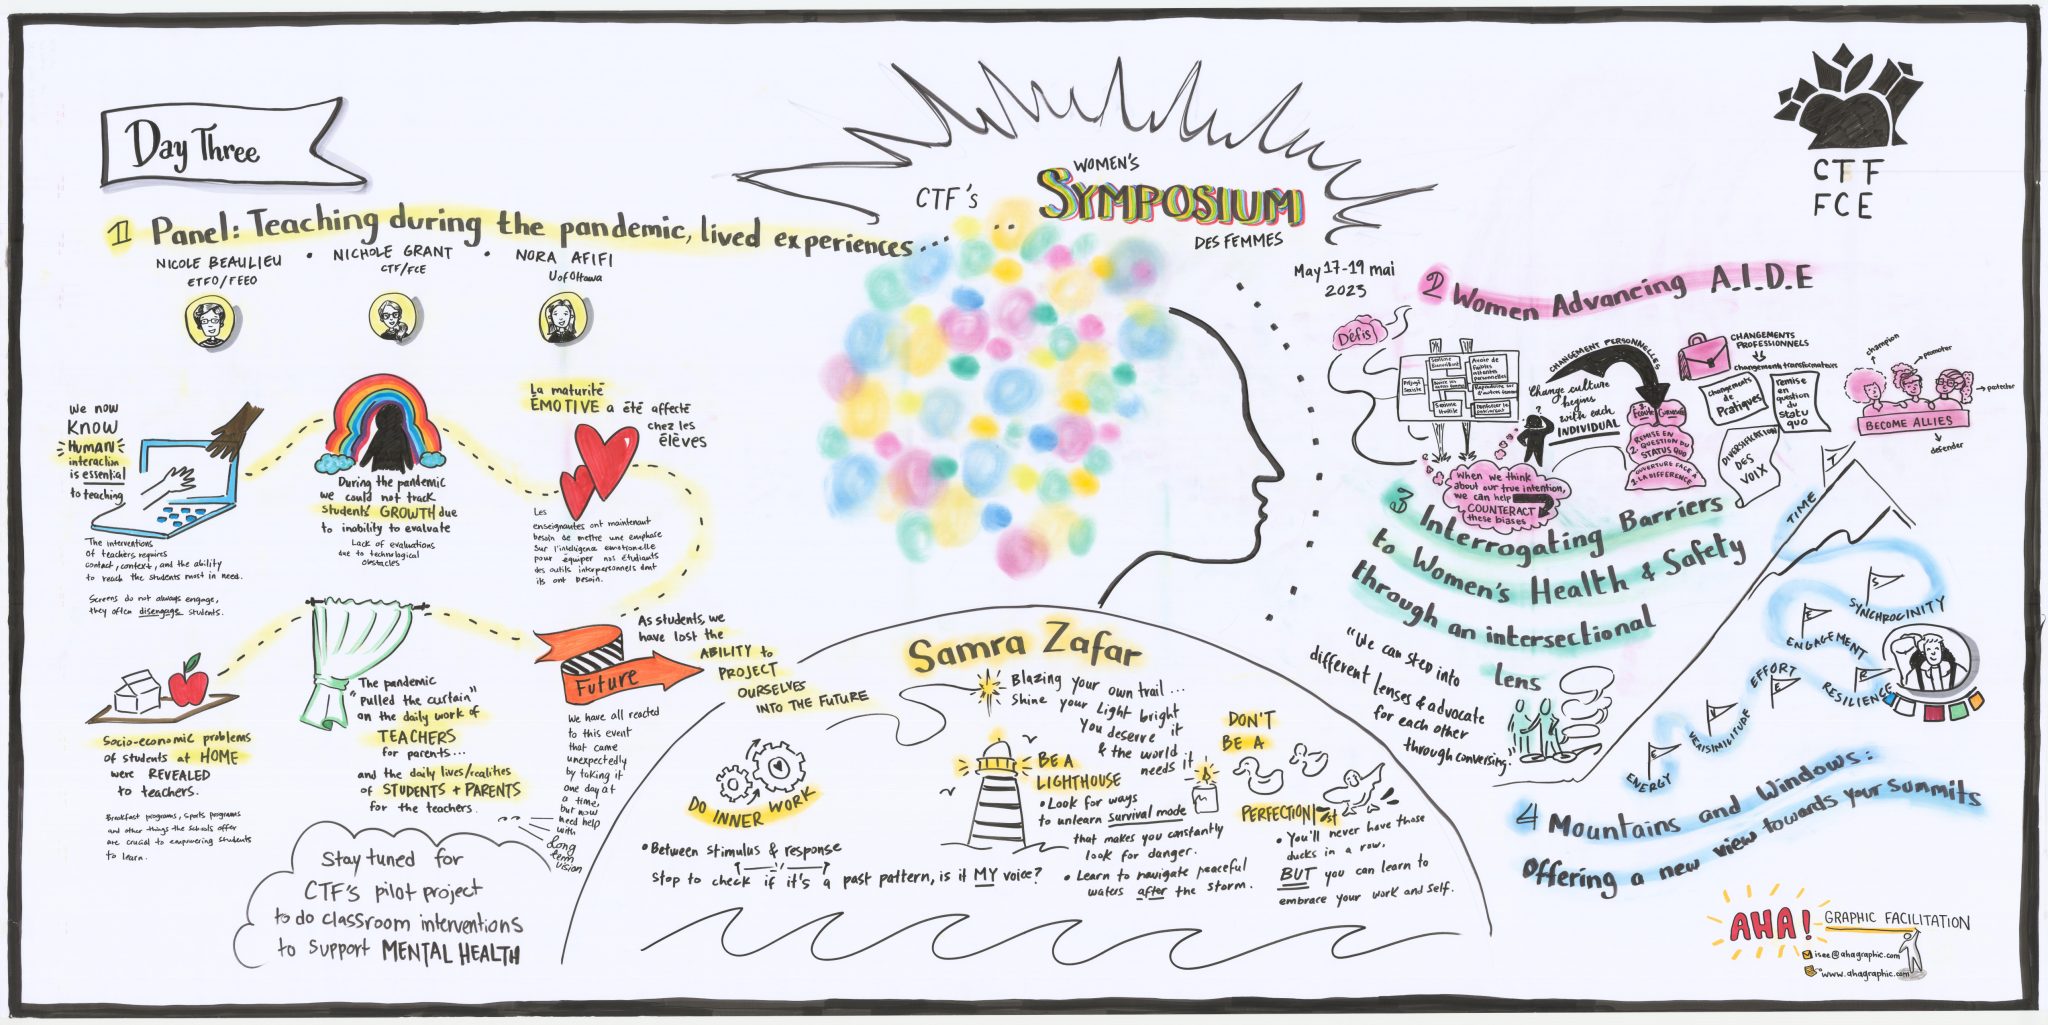 Day Three
CTF's
WOMEN'S
SYMPOSIUM
DES FEMMES
May 17-19 mai
2023
CTF
FCE
1 Panel: Teaching during the pandemic, lived experiences...
NICOLE BEAULIEU
ETFO/FEEO
NICHOLE GRANT
CTF/FCE
NORA AFIFI
U of Ottawa
We now
KNOW
HUMAN
interaction
is essential
to teaching
The interventions
of teachers requires
contact, context, and the ability
to reach the students most in need.
Screens do not always engage,
they often disengage students.
During the pandemic
we could not track
students' GROWTH due
to inability to evaluate
Lack of evaluations
due to technological
obstacles
La maturité
ÉMOTIVE a été affecté
chez les
élèves
Les
enseignantes ont maintenant
besoin de mettre une emphase
sur l'intelligence émotionelle
pour équiper nos étudiants
des outils interpersonnels dont
ils ont besoin.
Socio-economic problems
of students at HOME
were REVEALED
to teachers.
Breakfast programs, sports programs
and other things the schools offer
are crucial to empowering students
to learn.
The pandemic
"Pulled the curtain"
on the daily work of
TEACHERS
for parents...
and the daily lives/realities
of STUDENTS + PARENTS
for the teachers.
Future
As students, we
have lost the
ABILITY to
PROJECT
OURSELVES
INTO THE FUTURE
We have all reacted
to this event
that came
unexpectedly
by taking it
one day at
a time,
but now
need help
with
long
term
vision
Stay tuned for
CTF's pilot project
to do classroom interventions
to support MENTAL HEALTH
Samra Zafar
Blazing your own trail...
Shine your light bright
You deserve it
& the world
needs it
DO INNER WORK
• Between stimulus & response
Stop to check if it's a past pattern, is it MY voice?
BE A
LIGHTHOUSE
• Look for ways
to unlearn survival mode
that makes you constantly
look for danger.
• Learn to navigate peaceful
waters after the storm.
DON'T
BE A
PERFECTIONIST
• You'll never have those
ducks in a row.
BUT you can learn to
embrace your work and self.
2 Women Advancing A.I.D.E
Défis
Préjugé
Sexiste
Sexisme
Hostile
Avoir de
faibles
attentes
personnelles
CHANGEMENT PERSONNELLES
Change culture
begins
with each
INDIVIDUAL
When we think
about our true intention,
we can help
COUNTERACT
these biases
3. Écoute
2. REMISE EN
QUESTION DU
STATUS QUO
1. OUVERTURE FACE À
LA DIFFÉRENCE
CHANGEMENTS
PROFESSIONNELS
changements transformateurs
changements
de
Pratiques
remise
en
question
du
Statu
quo
DIVERSIFICATION
DES
VOIX
champion
promoter
protector
defender
BECOME ALLIES
3 Interrogating Barriers
to Women's Health & Safety
through an intersectional
lens
"We can step into
different lenses & advocate
for each other
through conversing."
T
TIME
S
SYNCHROCINITY
E
ENGAGEMENT
R
RESILIENCE
E
EFFORT
V
VERISIMILITUDE
E
ENERGY
4 Mountains and Windows:
Offering a new view towards your summits
AHA! GRAPHIC FACILITATION
isee@ahagraphic.com
www.ahagraphic.com